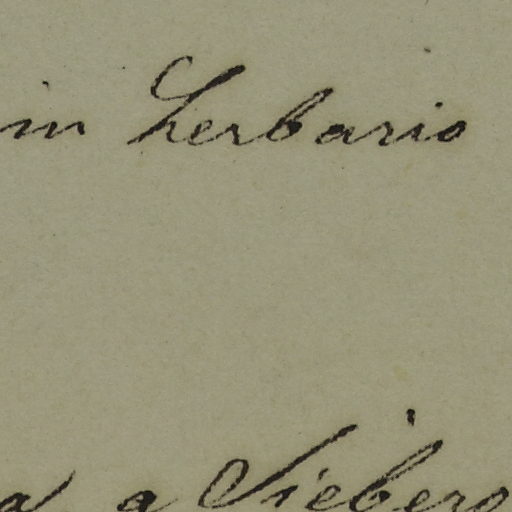 in herbario
a a Siebero